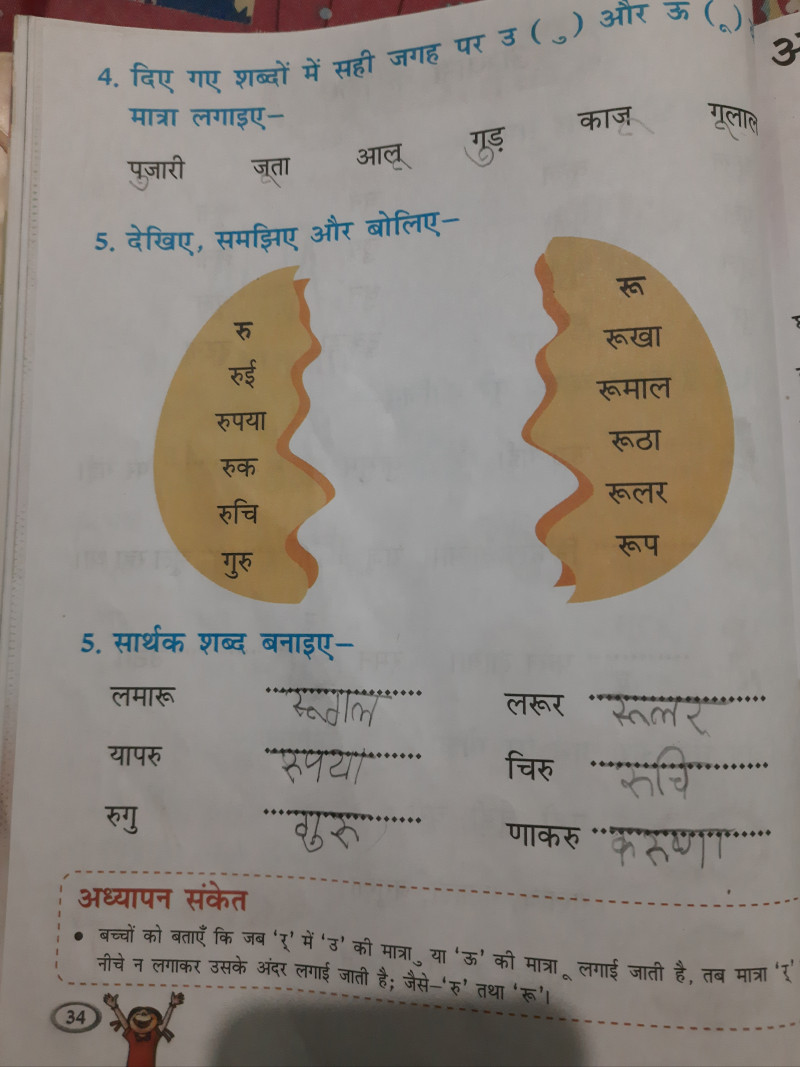 4. दिए गए शब्दों में सही जगह पर उ ( ु ) और ऊ ( ू )
मात्रा लगाइए–
पुजारी जूता आलू गुड़ काजू गूलाल
5. देखिए, समझिए और बोलिए–
रु
रुई
रुपया
रुक
रुचि
गुरु
रू
रूखा
रूमाल
रूठा
रूलर
रूप
5. सार्थक शब्द बनाइए–
लमारू लरूर रूलर
यापरु रुपया चिरु रुचि
रुगु गुरु णाकरु
अध्यापन संकेत
• बच्चों को बताएँ कि जब ‘र्’ में ‘उ’ की मात्रा ु या ‘ऊ’ की मात्रा ू लगाई जाती है, तब मात्रा ‘र्’
नीचे न लगाकर उसके अंदर लगाई जाती है; जैसे–‘रु’ तथा ‘रू’।
34